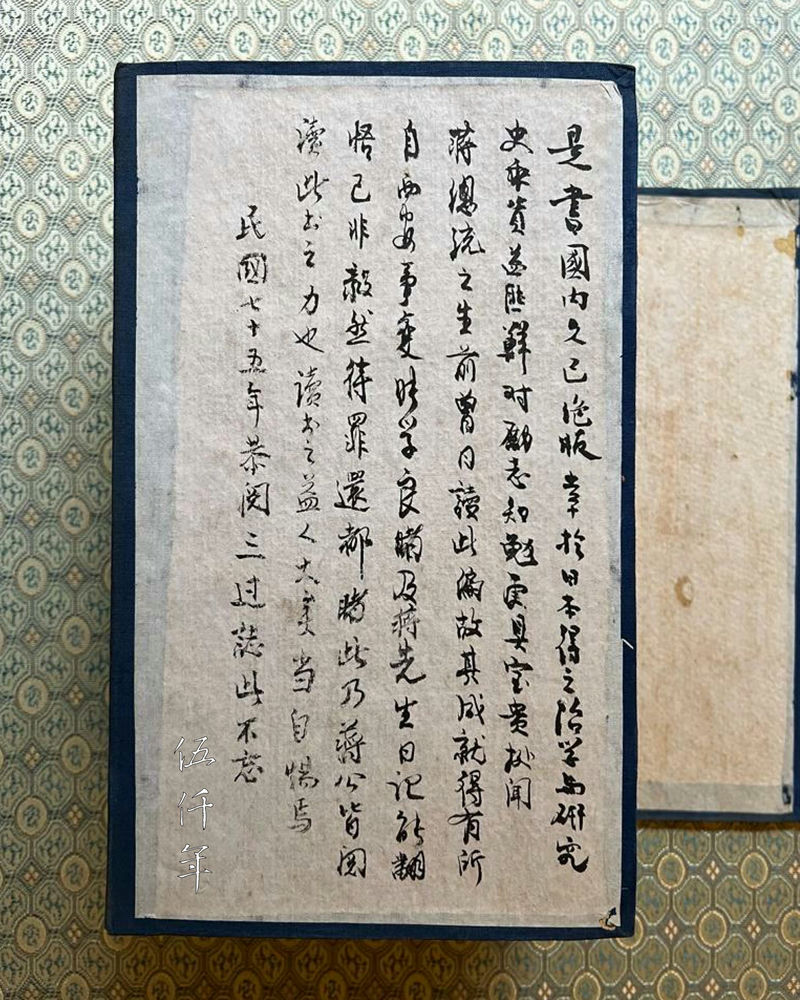 是書國内久已絶版幸於日本得之治学與研究
史乘資益匪鮮对勵志知勉更具宝貴拟聞
蔣總統之生前曾日讀此編故其成就得有所
自西安事变時学良睹及蔣先生日記能翻
悟己非毅然待罪還都睹此乃蔣公皆閲
讀此书之力也讀书之益人大矣当自惕焉
民國七十五年恭閲三过誌此不忘
伍仟年